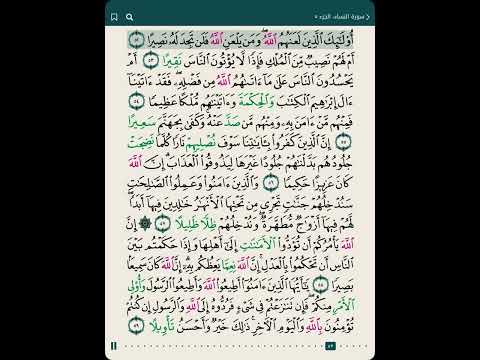 سورة النساء، الجزء ٥
أُوْلَـٰٓئِكَ ٱلَّذِينَ لَعَنَهُمُ ٱللَّهُۖ وَمَن يَلْعَنِ ٱللَّهُ فَلَن تَجِدَ لَهُۥ نَصِيرًا ٥٢
أَمْ لَهُمْ نَصِيبٌ مِّنَ ٱلْمُلْكِ فَإِذًا لَّا يُؤْتُونَ ٱلنَّاسَ نَقِيرًا ٥٣ أَمْ
يَحْسُدُونَ ٱلنَّاسَ عَلَىٰ مَآ ءَاتَىٰهُمُ ٱللَّهُ مِن فَضْلِهِۦۖ فَقَدْ ءَاتَيْنَآ
ءَالَ إِبْرَٰهِيمَ ٱلْكِتَـٰبَ وَٱلْحِكْمَةَ وَءَاتَيْنَـٰهُم مُّلْكًا عَظِيمًا ٥٤
فَمِنْهُم مَّنْ ءَامَنَ بِهِۦ وَمِنْهُم مَّن صَدَّ عَنْهُۚ وَكَفَىٰ بِجَهَنَّمَ سَعِيرًا
٥٥ إِنَّ ٱلَّذِينَ كَفَرُوا۟ بِـَٔايَـٰتِنَا سَوْفَ نُصْلِيهِمْ نَارًا كُلَّمَا نَضِجَتْ
جُلُودُهُم بَدَّلْنَـٰهُمْ جُلُودًا غَيْرَهَا لِيَذُوقُوا۟ ٱلْعَذَابَۗ إِنَّ ٱللَّهَ
كَانَ عَزِيزًا حَكِيمًا ٥٦ وَٱلَّذِينَ ءَامَنُوا۟ وَعَمِلُوا۟ ٱلصَّـٰلِحَـٰتِ
سَنُدْخِلُهُمْ جَنَّـٰتٍ تَجْرِى مِن تَحْتِهَا ٱلْأَنْهَـٰرُ خَـٰلِدِينَ فِيهَآ أَبَدًاۖ
لَّهُمْ فِيهَآ أَزْوَٰجٌ مُّطَهَّرَةٌۖ وَنُدْخِلُهُمْ ظِلًّا ظَلِيلًا ٥٧ ۞ إِنَّ
ٱللَّهَ يَأْمُرُكُمْ أَن تُؤَدُّوا۟ ٱلْأَمَـٰنَـٰتِ إِلَىٰٓ أَهْلِهَا وَإِذَا حَكَمْتُم بَيْنَ
ٱلنَّاسِ أَن تَحْكُمُوا۟ بِٱلْعَدْلِۚ إِنَّ ٱللَّهَ نِعِمَّا يَعِظُكُم بِهِۦٓۗ إِنَّ ٱللَّهَ كَانَ سَمِيعًۢا
بَصِيرًا ٥٨ يَـٰٓأَيُّهَا ٱلَّذِينَ ءَامَنُوٓا۟ أَطِيعُوا۟ ٱللَّهَ وَأَطِيعُوا۟ ٱلرَّسُولَ وَأُو۟لِى
ٱلْأَمْرِ مِنكُمْۖ فَإِن تَنَـٰزَعْتُمْ فِى شَىْءٍ فَرُدُّوهُ إِلَى ٱللَّهِ وَٱلرَّسُولِ إِن كُنتُمْ
تُؤْمِنُونَ بِٱللَّهِ وَٱلْيَوْمِ ٱلْـَٔاخِرِۚ ذَٰلِكَ خَيْرٌ وَأَحْسَنُ تَأْوِيلًا ٥٩